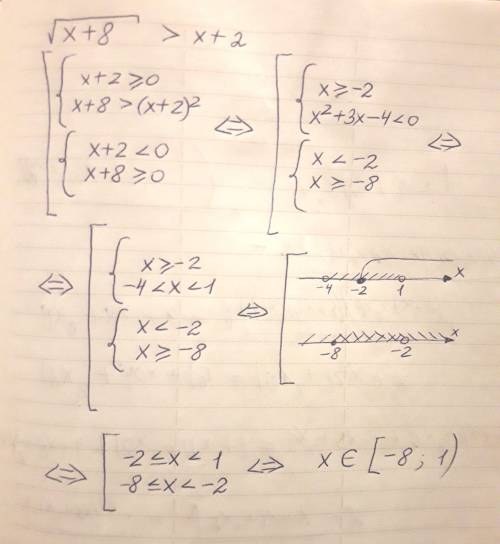 √(x+8) > x+2
[ { x+2 ≥ 0
x+8 > (x+2)²
{ x+2 < 0
x+8 ≥ 0
⇔ [ { x ≥ -2
x²+3x-4<0
{ x < -2
x ≥ -8 ⇔
⇔ [ { x ≥ -2
-4 < x < 1
{ x < -2
x ≥ -8
⇔ [ -4 -2 1 x
-8 -2 x
⇔ [ -2 ≤ x < 1
-8 ≤ x < -2
⇔ x ∈ [-8; 1)